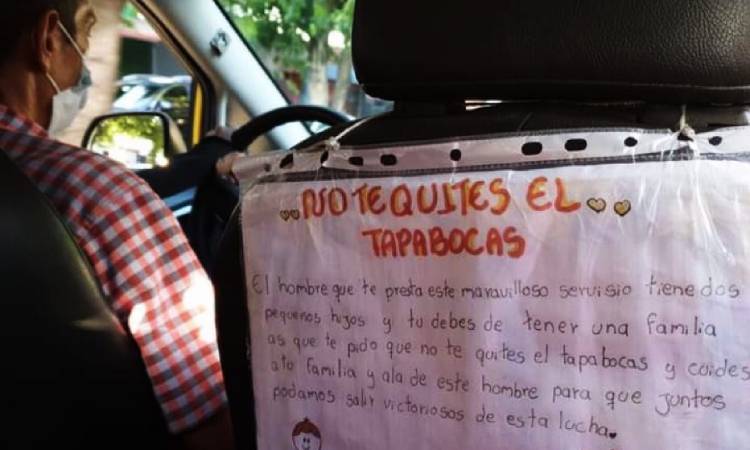 NO TE QUITES EL
TAPABOCAS
El hombre que te presta este maravilloso servisio tiene dos
pequeños hijos y tu debes de tener una familia
as que te pido que no te quites el tapabocas y cuides
a tu familia y ala de este hombre para que juntos
podamos salir victoriosos de esta lucha.